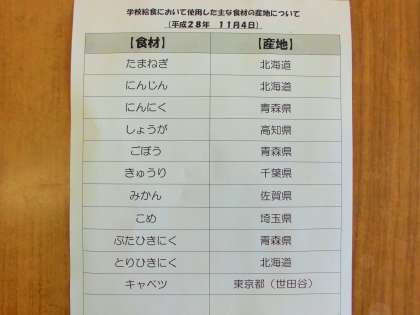 学校給食において使用した主な食材の産地について
（平成２８年　１１月４日）
【食材】　【産地】
たまねぎ　北海道
にんじん　北海道
にんにく　青森県
しょうが　高知県
ごぼう　青森県
きゅうり　千葉県
みかん　佐賀県
こめ　埼玉県
ぶたひきにく　青森県
とりひきにく　北海道
キャベツ　東京都（世田谷）